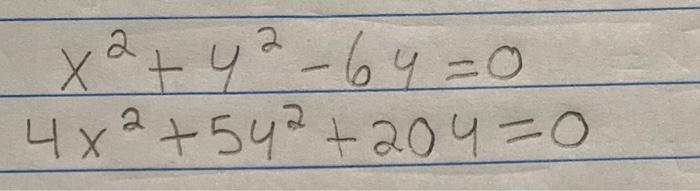 x² + y² - 6y = 0
4x² + 5y² + 20y = 0